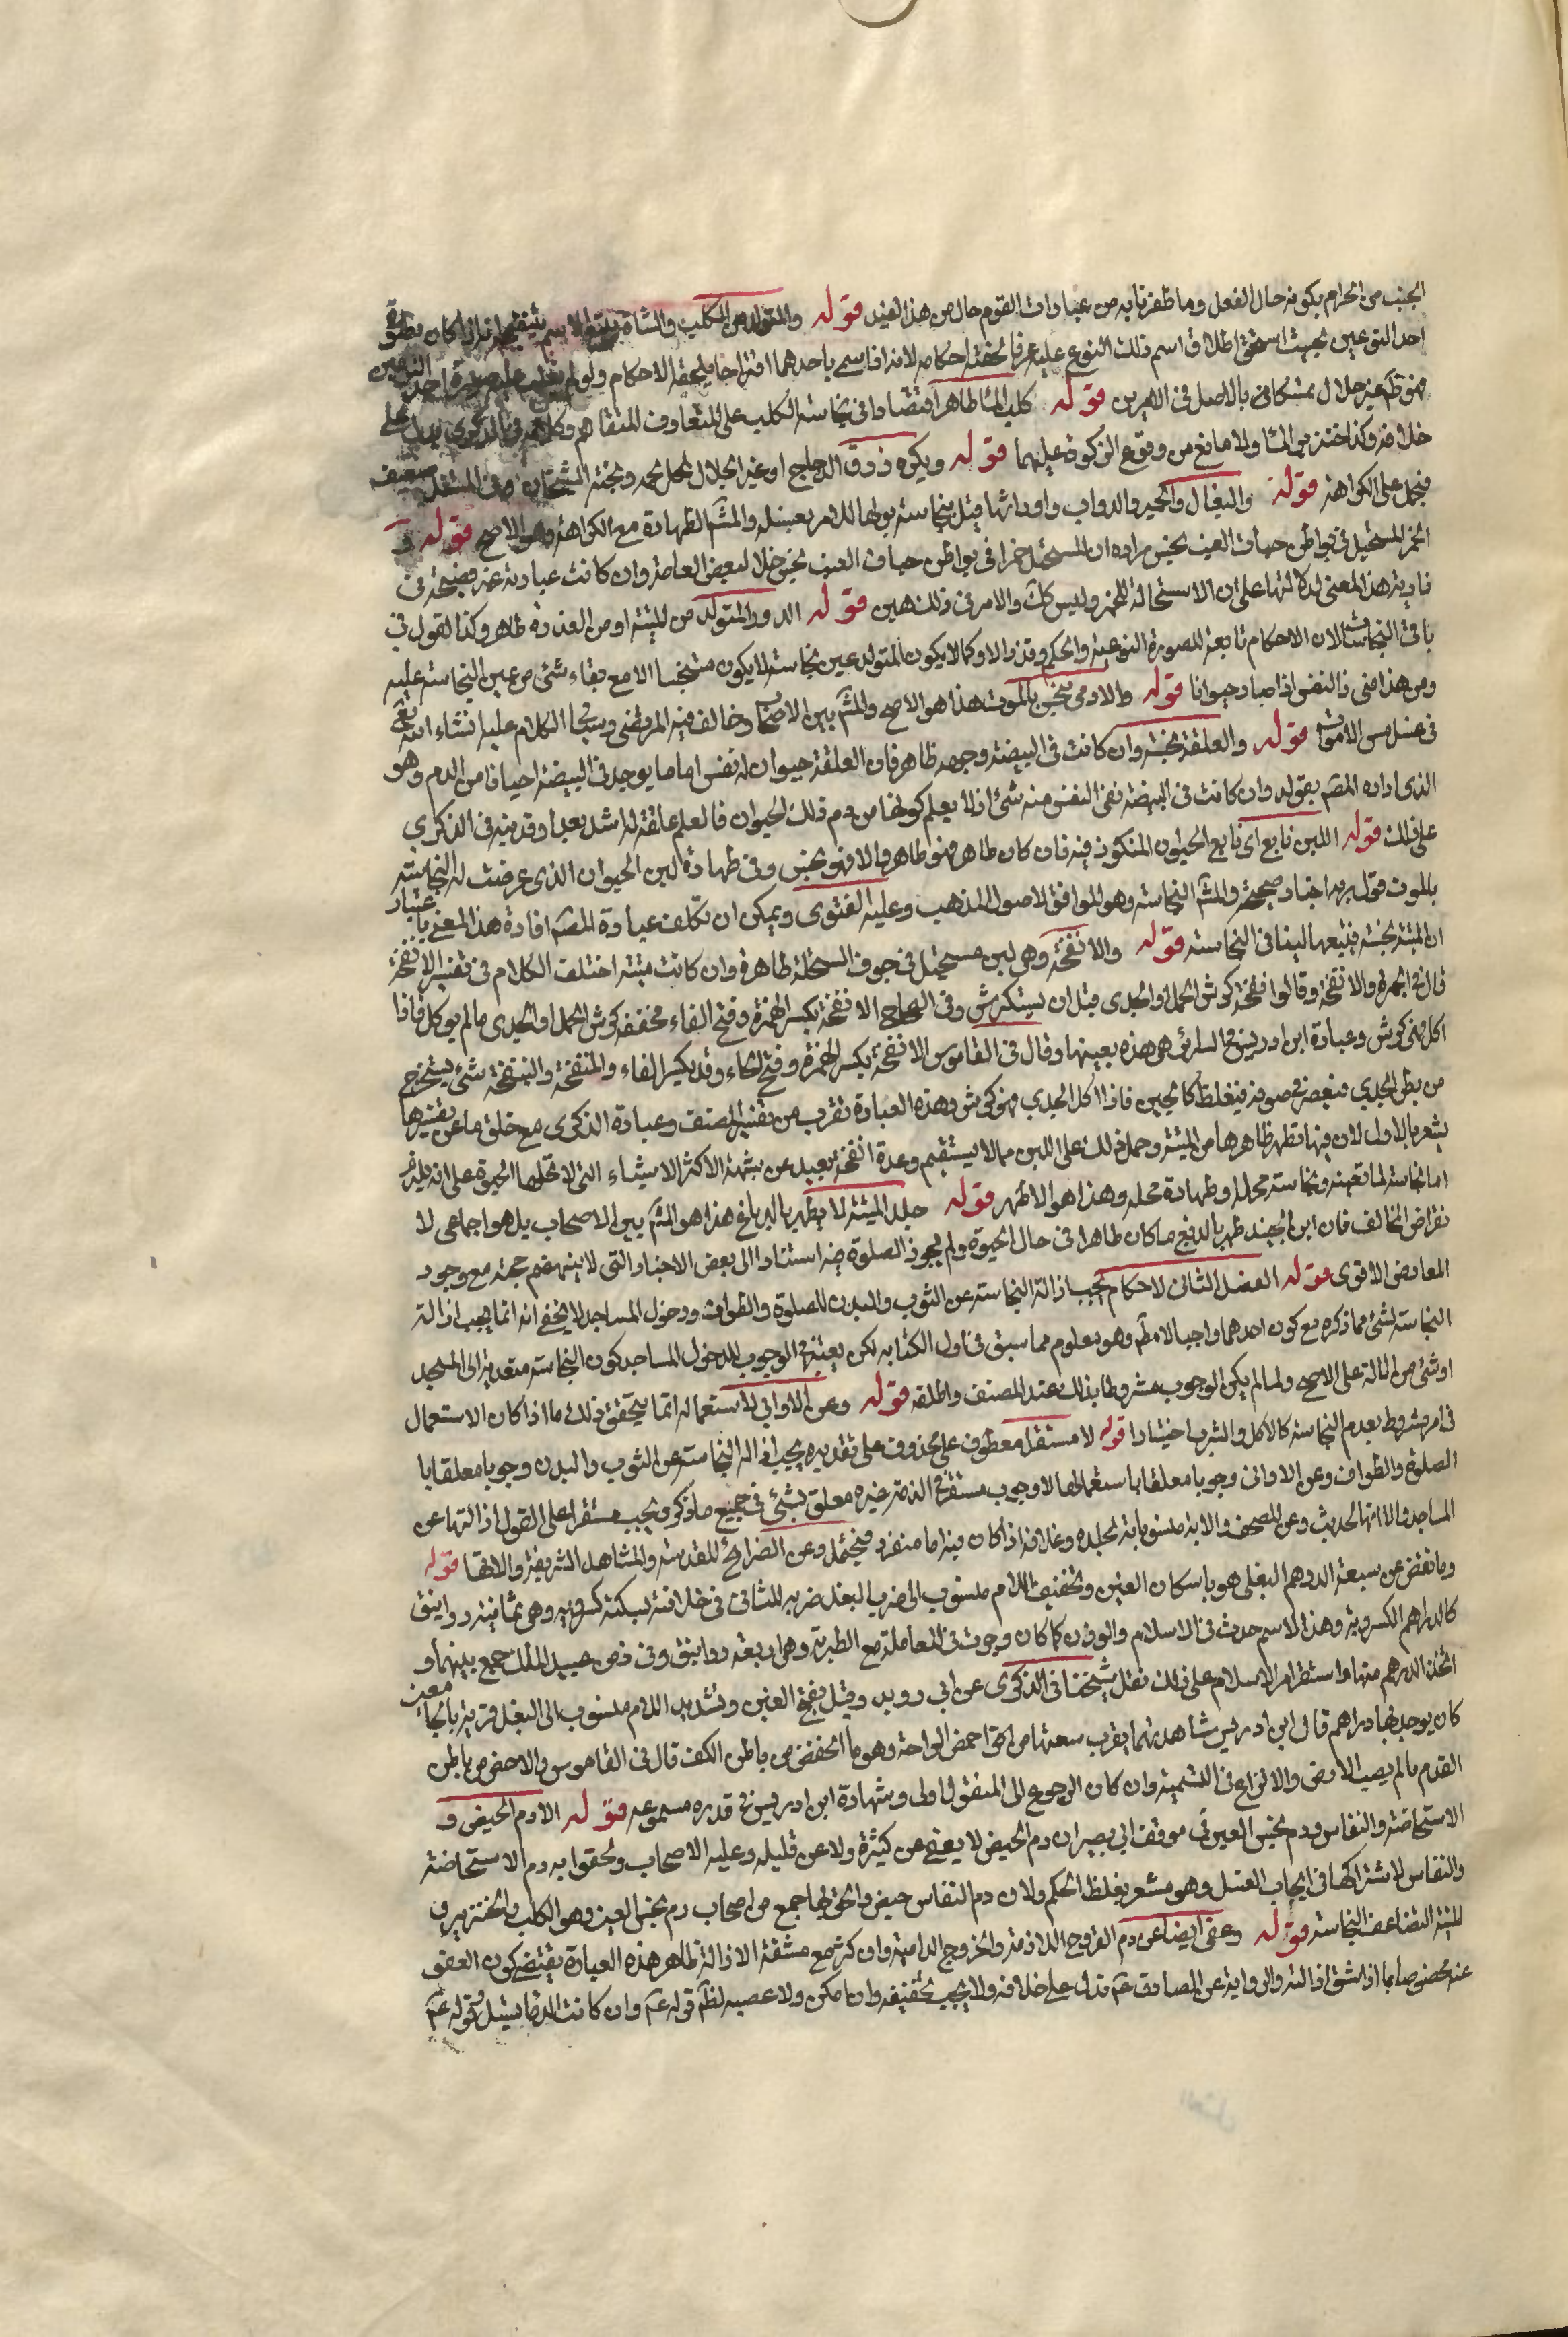 الجنب من الحرام بكونه حال الفعل وما ظفرنا به من عبارات القوم خال من هذا القيد قوله والمتولد من الكلب والشاة يتبع الاسم
احد النوعين بحيث استحق اطلاق اسم ذلك النوع عليه عرفا لحقته احكامه لانه اذا سمي باحدهما يلحقه الاحكام ولو لم يغلب عليه صورة احد النوعين
فهو طاهر غير حلال تمسكا في بالاصل في الامرين قوله كلب الماء طاهر اقتصارا في نجاسة الكلب على المتعارف
خلافه وكذا خنزير الماء ولا مانع من وقوع الذكوة عليهما قوله ويكره ذرق الدجاج او غير الجلال لحل لحمه وحجة الشيخان ضعيف
فيحمل على الكراهة قوله والبغال والحمير والدواب واورائها قيل بنجاسة بولها للامر بغسله والمشهر الطهارة مع الكراهة وهو الاصح قوله و
الخمر المستحيل في بواطن حبات العنب نجس مراده ان المستحيل خمرا في بواطن حبات العنب نجس خلافا لبعض العامة وان كانت عبارته غير فصيحة في
تادية هذا المعنى لدلالتها على ان الاستحالة للخمر وليس كك والامر في ذلك هين قوله الدود المتولد من الميتة او من العذرة طاهر وكذا القول في
باقي النجاسات لان الاحكام تابعة للصورة النوعية والحكم وقد زالا وكما لا يكون المتولد عين نجاسة لا يكون متنجسا الا مع بقاء شئ من عين النجاسة عليه
ومن هذا مني ذا النفس اذا صار حيوانا قوله والادمي ينجس بالموت هذا هو الاصح والمشهر بين الاصحاب وخالف فيه المرتضى وسيجئ الكلام عليه انشاء الله تعالى
في غسل مس الاموات قوله والعلقة نجسة وان كانت في البيضة وجهه ظاهر فان العلقة حيوان له نفس اما ما يوجد في البيضة احيانا من الدم وهو
الذي اراده المصنف بقوله وان كانت في البيضة ففي النفس منه شئ اذ لا يعلم كونها من دم ذلك الحيوان فالعلم علقة له اشد بعدا وقد نبه في الذكرى
على ذلك قوله اللبن تابع اي تابع الحيوان المتكون فيه فان كان طاهر فهو طاهر والا فهو نجس وفي طهارة لبن الحيوان الذي عرضت له النجاسة
بالموت قول به اخبار صحيحة والمشهر النجاسة وهو الموافق لاصول المذهب وعليه الفتوى ويمكن ان تكلف عبارة المصنف افادة هذا المعنى باعتبار
ان الميتة نجسة فيتبعها لبنها في النجاسة قوله والانفحة وهي لبن مستحيل في جوف السخلة طاهرة وان كانت ميتة اختلف الكلام في تفسير الانفحة
قال في الجمهرة والانفحة وقالوا انفحة كرش الحمل او الجدي قبل ان يستكرش وفي الصحاح الانفحة بكسر الهمزة وفتح الفاء مخففة كرش الحمل او الجدي ما لم يوكل فاذا
اكل فهي كرش وعبارة ابن ادريس في السرائر هي هذه بعينها وقال في القاموس الانفحة بكسر الهمزة وفتح الحاء وقد يكسر الفاء والمنفحة والبنفحة شئ يستخرج
من بطن الجدي فيعصر في صوفة فيغلظ كالجبن فاذا اكل الجدي فهو كرش وهذه العبارة تقرب من تفسير المصنف وعبارة الذكرى مع خلوها عن تفسيرها
يشعر بالاول لان فيها تطهر ظاهرها من الميتة وحمل ذلك على اللبن مما لا يستقيم وعدة انفحة بعيد عن شبهة الاكثر الاشياء التي لا تحلها الحيوة على انه يلزم
اما نجاسة لما تعينه ونجاسة محله او طهارة محله وهذا هو الاظهر قوله جلد الميتة لا يطهر بالدباغ هذا هو المشهر بين الاصحاب بل هو اجماعي لا
نقراض المخالف فان ابن الجنيد طهر بالدبغ ما كان طاهرا في حال الحيوة ولم يجوز الصلوة فيه استنادا الى بعض الاخبار التي لا ينهض حجة مع وجود
المعارض الاقوى قوله الفصل الثاني لاحكام يجب ازالة النجاسة عن الثوب والبدن للصلوة والطواف ودخول المساجد لا يخفى انه انما يجب ازالة
النجاسة لشئ مما ذكره مع كون احدهما واجبا لا مطلقا وهو معلوم مما سبق في اول الكتاب لكن يعتبر في الوجوب للدخول المساجد كون النجاسة متعدية الى المسجد
او شئ من الالة على الاصح ولما لم يكن الوجوب مشروطا بذلك عند المصنف واطلقه قوله وعن الاواني لاستعماله انما يتحقق ذلك ما اذا كان الاستعمال
في امر مشروط بعدم النجاسة كالاكل والشرب اختيارا قوله لا مستقرا معطوف على محذوف على تقديره يجب ازالة النجاسة عن الثوب والبدن وجوبا معلقا با
الصلوة والطواف وعن الاواني وجوبا معلقا باستعمالها لا وجوب مستقر في الذمة غيره معلق بشئ في جميع ما ذكر ويجب مستقرا على القول ازالتها عن
المساجد والاتها لحديث وعن المصحف والابة منسوبا به لجلده وغلافه اذا كان فيه اما منفرد فيحتمل وعن الضرائح المقدسة والمشاهد الشريفة والاتها قوله
وما نقص عن سبعة الدرهم البغلي هو باسكان الغين وتخفيف اللام منسوب الى ضرب البغل ضربه للثاني في خلافته بسكة كسروية وهي ثمانية دوانيق
كالدراهم الكسروية وهذا الاسم حدث في الاسلام والوزن كما كان وجرت في المعاملة مع الطبرية وهي اربعة دوانيق وفي زمن عبد الملك جمع بينهما و
اتخذ الدرهم منها واستقر امر الاسلام على ذلك نقل شيخنا في الذكرى عن ابن دريد وقيل بفتح الغين وتشديد اللام منسوب الى البغل قرية بالجامعين
كان يوجد بها دراهم قال ابن ادريس شاهدتها يقرب سعتها من اخمص الراحة وهو ما انخفض من باطن الكف قال في القاموس والاخمص من باطن
القدم ما لم يصب الارض والا نزاع في التسمية وان كان الرجوع الى المنقول اولى وشهادة ابن ادريس في قدره مسموعة قوله الا دم الحيض و
الاستحاضة والنفاس ودم نجس العين في موقف ابي بصير ان دم الحيض لا يعفى عن كثيره ولا عن قليله وعليه الاصحاب ولحقوا به دم الاستحاضة
والنفاس لاشتراكها في ايجاب الغسل وهو مشعر بغلظ الحكم ولان دم النفاس حيض والحق بها جمع من اصحاب دم نجس العين وهو الكلب والخنزير و
الميتة لتضاعف النجاسة قوله وعفي ايضا عن دم القروح اللازمة والجروح الدامية وان كثر مع مشقة الازالة ظاهر هذه العبارة يقتضي كون العفو
عنه مخصوصا بما اذا شق ازالته والرواية عن الصادق ع تدل على خلافه ولا يجب تخفيفه وان امكن ولا عصبه لظاهر قوله ع وان كانت الدماء تسيل وقوله ع